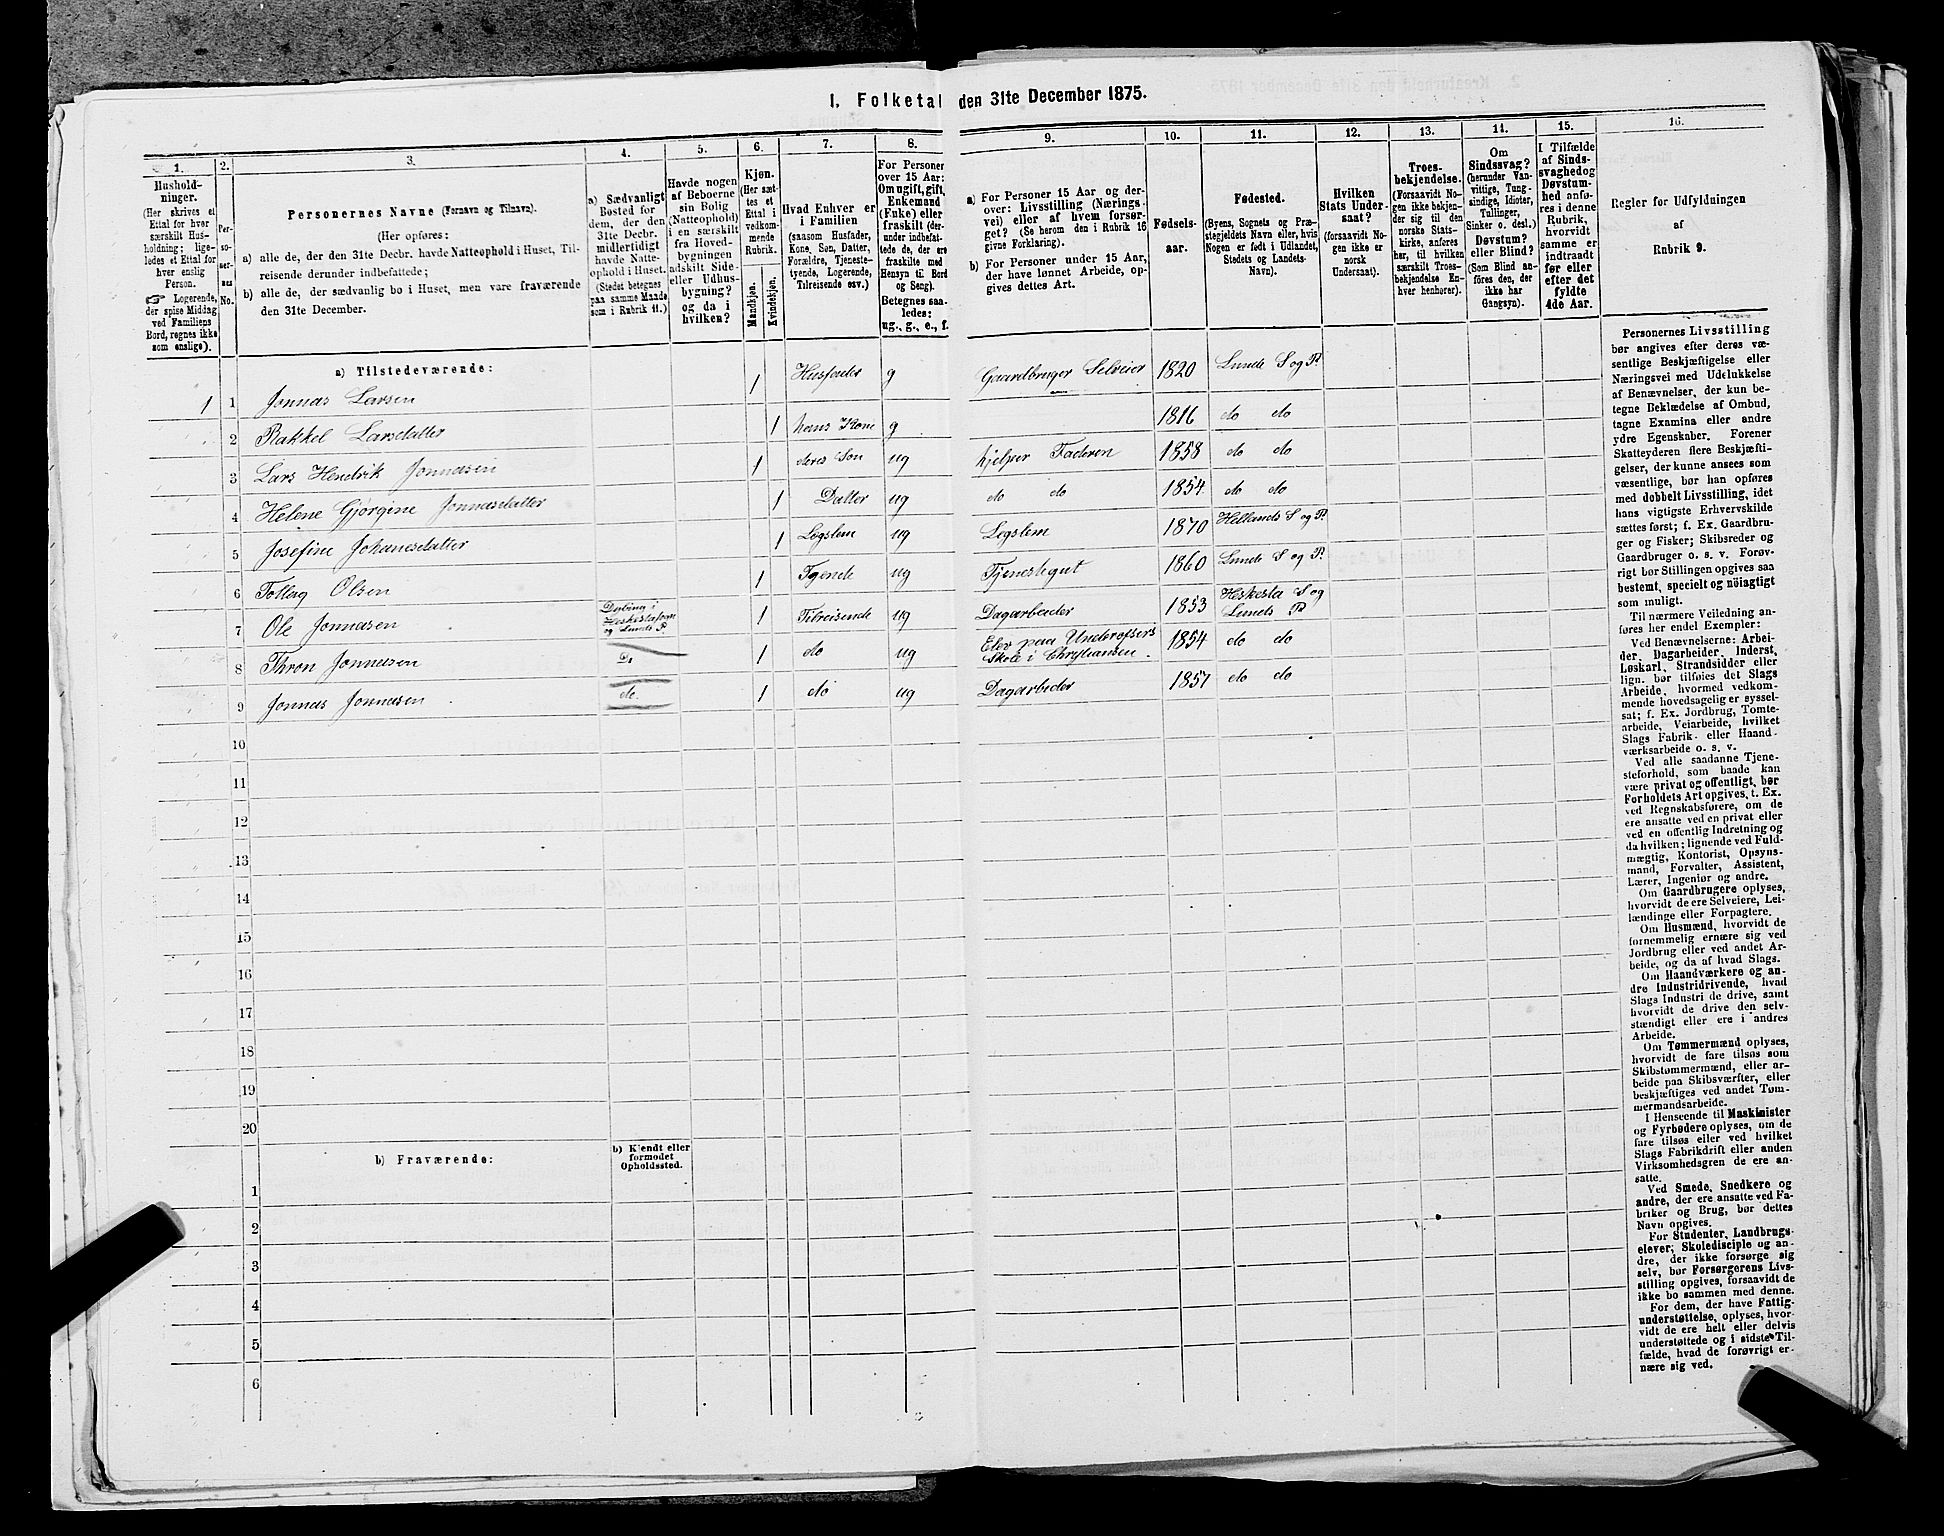 I. Folketal den 31te December 1875.
1.
Hushold-
ninger.
(Her skrives et
Ettal for hver
særskilt Hus-
holdning; lige-
ledes et Ettal for
hver enslig
Person.
☞ Logerende,
der spise Middag
ved Familiens
Bord, regnes ikke
som enslige).
2.
Per-
so-
ner-
nes
No.
3.
Personernes Navne (Fornavn og Tilnavn).
(Her opføres:
a) alle de, der den 31te Decbr. havde Natteophold i Huset, Til-
reisende derunder indbefattede;
b) alle de, der sædvanlig bo i Huset, men vare fraværende
den 31te December.
4.
a) Sædvanligt
Bosted for
dem, der den
31te Decbr.
midlertidigt
havde Natte-
ophold i Huset.
(Stedet betegnes
paa samme Maade
som i Rubrik 11.)
5.
Havde nogen
af Beboerne
sin Bolig
(Natteophold)
i en særskilt
fra Hoved-
bygningen
adskilt Side-
eller Udhus-
bygning?
og da i
hvilken?
6.
Kjøn.
(Her sæt-
tes et
Ettal i
vedkom-
mende
Rubrik.
Mandkjøn.
Kvindekjøn.
7.
Hvad Enhver er
i Familien
(saasom Husfader,
Kone, Søn, Datter,
Forældre, Tjeneste-
tyende, Logerende,
Tilreisende osv.)
8.
For Personer
over 15 Aar:
Om ugift, gift,
Enkemand
(Enke) eller
fraskilt (der-
under indbefat-
tede de, der ere
fraskilte med
Hensyn til Bord
og Seng).
Betegnes saa-
ledes:
ug., g., e., f.
9.
a) For Personer 15 Aar og der-
over: Livsstilling (Nærings-
vei) eller af hvem forsør-
get? (Se herom den i Rubrik 16
givne Forklaring).
b) For Personer under 15 Aar,
der have lønnet Arbeide, op-
gives dettes Art.
10.
Fødsels-
aar.
11.
Fødested.
(Byens, Sognets og Præ-
stegjeldets Navn eller, hvis
Nogen er født i Udlandet,
Stedets og Landets
Navn).
12.
Hvilken
Stats Under-
saat?
(forsaavidt No-
gen ikke er
norsk
Undersaat).
13.
Troes-
bekjendelse.
(Forsaavidt No-
gen ikke bekjen-
der sig til den
norske Stats-
kirke, anføres
her, til hvilken
særskilt Troes-
bekjendelse En-
hver henhører).
14.
Om
Sindssvag?
(herunder Van-
vittige, Tung-
sindige, Idioter,
Tullinger,
Sinker o. desl.)
Døvstum?
eller Blind?
(Som Blind an-
føres den, der
ikke har
Gangsyn).
15.
I Tilfælde
af Sinds-
svaghed og
Døvstum-
hed anfø-
res i denne
Rubrik,
hvorvidt
samme er
indtraadt
før eller
efter det
fyldte
4de Aar.
16.
Regler for Udfyldningen
af
Rubrik 9.
a) Tilstedeværende:
1 1 Jonnas Larsen 1 Husfader g Gaardbruger Selveier 1820 Lunde S og P.
2 Rakkel Larsdatter 1 hans Kone g 1816 do do
3 Lars Hendrik Jonnasen 1 deres Søn ug hjelper Faderen 1858 do do
4 Helene Gjørgine Jonnasdatter 1 Datter ug do do 1854 do do
5 Josefine Johanesdatter 1 Legslem ug Legslem 1870 Hellands S og P.
6 Tolleg Olsen 1 Tyende ug Tjenestegut 1860 Lunde S og P.
7 Ole Jonnasen Heskestadsogn og Lunds P. 1 Tilreisende ug Dagarbeider 1853 Heskesta S og Lunds P
8 Thron Jonnasen Do 1 do ug Elev paa Underofsers Skole i Christiansen. 1854 do do
9 Jonnas Jonnasen do. 1 do ug Dagarbeder 1857 do do
10
11
12
13
14
15
16
17
18
19
20
b) Fraværende:
b) Kjendt eller
formodet
Opholdssted.
1
2
3
4
5
6
Personernes Livsstilling
bør angives efter deres væ-
sentlige Beskjæftigelse eller
Næringsvei med Udelukkelse
af Benævnelser, der kun be-
tegne Beklædelse af Ombud,
tagne Examina eller andre
ydre Egenskaber. Forener
Skatteyderen flere Beskjæfti-
gelser, der kunne ansees som
væsentlige, bør han opføres
med dobbelt Livsstilling, idet
hans vigtigste Erhvervskilde
sættes først; f. Ex. Gaardbru-
ger og Fisker; Skibsreder og
Gaardbruger o. s. v. Forøv-
rigt bør Stillingen opgives saa
bestemt, specielt og nøiagtigt
som muligt.
Til nærmere Veiledning an-
føres her endel Exempler:
Ved Benævnelserne: Arbei-
der, Dagarbeider, Inderst,
Løskarl, Strandsidder eller
lign. bør tilføies det Slags
Arbeide, hvormed vedkom-
mende hovedsagelig er syssel-
sat; f. Ex. Jordbrug, Tomte-
arbeide, Veiarbeide, hvilket
Slags Fabrik- eller Haand-
værksarbeide o. s. v.
Ved alle saadanne Tjene-
steforhold, som baade kan
være privat og offentligt, bør
Forholdets Art opgives, t. Ex.
ved Regnskabsførere, om de
ere ansatte ved en privat eller
ved en offentlig Indretning og
da hvilken; lignende ved Fuld-
mægtig, Kontorist, Opsyns-
mand, Forvalter, Assistent,
Lærer, Ingeniør og andre.
Om Gaardbrugere oplyses,
hvorvidt de ere Selveiere, Lei-
lændinge eller Forpagtere.
Om Husmænd, hvorvidt de
fornemmelig ernære sig ved
Jordbrug eller ved andet Ar-
beide, og da af hvad Slags.
Om Haandværkere og an-
dre Industridrivende, hvad
Slags Industri de drive, samt
hvorvidt de drive den selv-
stændigt eller ere i andres
Arbeide.
Om Tømmermænd oplyses,
hvorvidt de fare tilsøs som
Skibstømmermænd, eller ar-
beide paa Skibsværfter, eller
beskjæftiges ved andet Tøm-
mermandsarbeide.
I Henseende til Maskinister
og Fyrbødere oplyses, om de
fare tilsøs eller ved hvilket
Slags Fabrikdrift eller anden
Virksomhedsgren de ere an-
satte.
Ved Smede, Snedkere og
andre, der ere ansatte ved Fa-
briker og Brug, bør dettes
Navn opgives.
For Studenter, Landbrugs-
elever, Skoledisciple og an-
dre, der ikke forsørge sig
selv, bør Forsørgerens Livs-
stilling opgives, forsaavidt de
ikke bo sammen med denne.
For dem, der have Fattig-
understøttelse, oplyses, hvor-
vidt de ere helt eller delvis
understøttede og i sidste Til-
fælde, hvad de forøvrigt er-
nære sig ved.